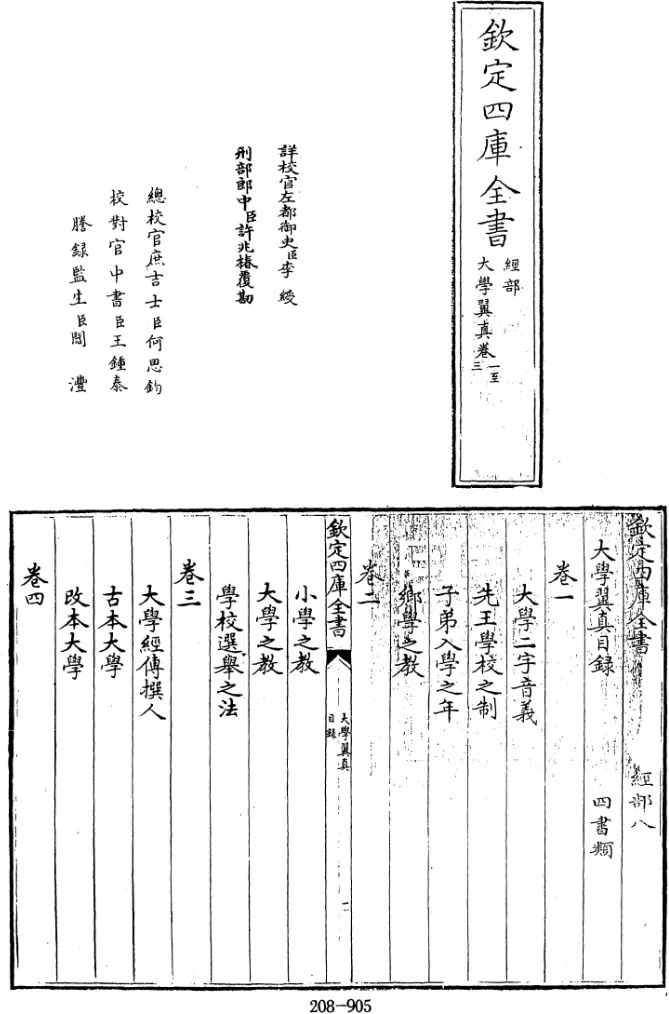 欽定四庫全書
經部
大學翼真卷一至三
詳校官左都御史臣李綬
刑部郎中臣許兆椿覆勘
總校官庶吉士臣何思鈞
校對官中書臣王鍾泰
謄錄監生臣閻灃
欽定四庫全書 經部八
大學翼真目録 四書類
卷一
大學二字音義
先王學校之制
子弟入學之年
鄉學之教
卷二
欽定四庫全書
大學翼真
目録
小學之教
大學之教
學校選舉之法
卷三
大學經傳撰人
古本大學
改本大學
卷四
208-905